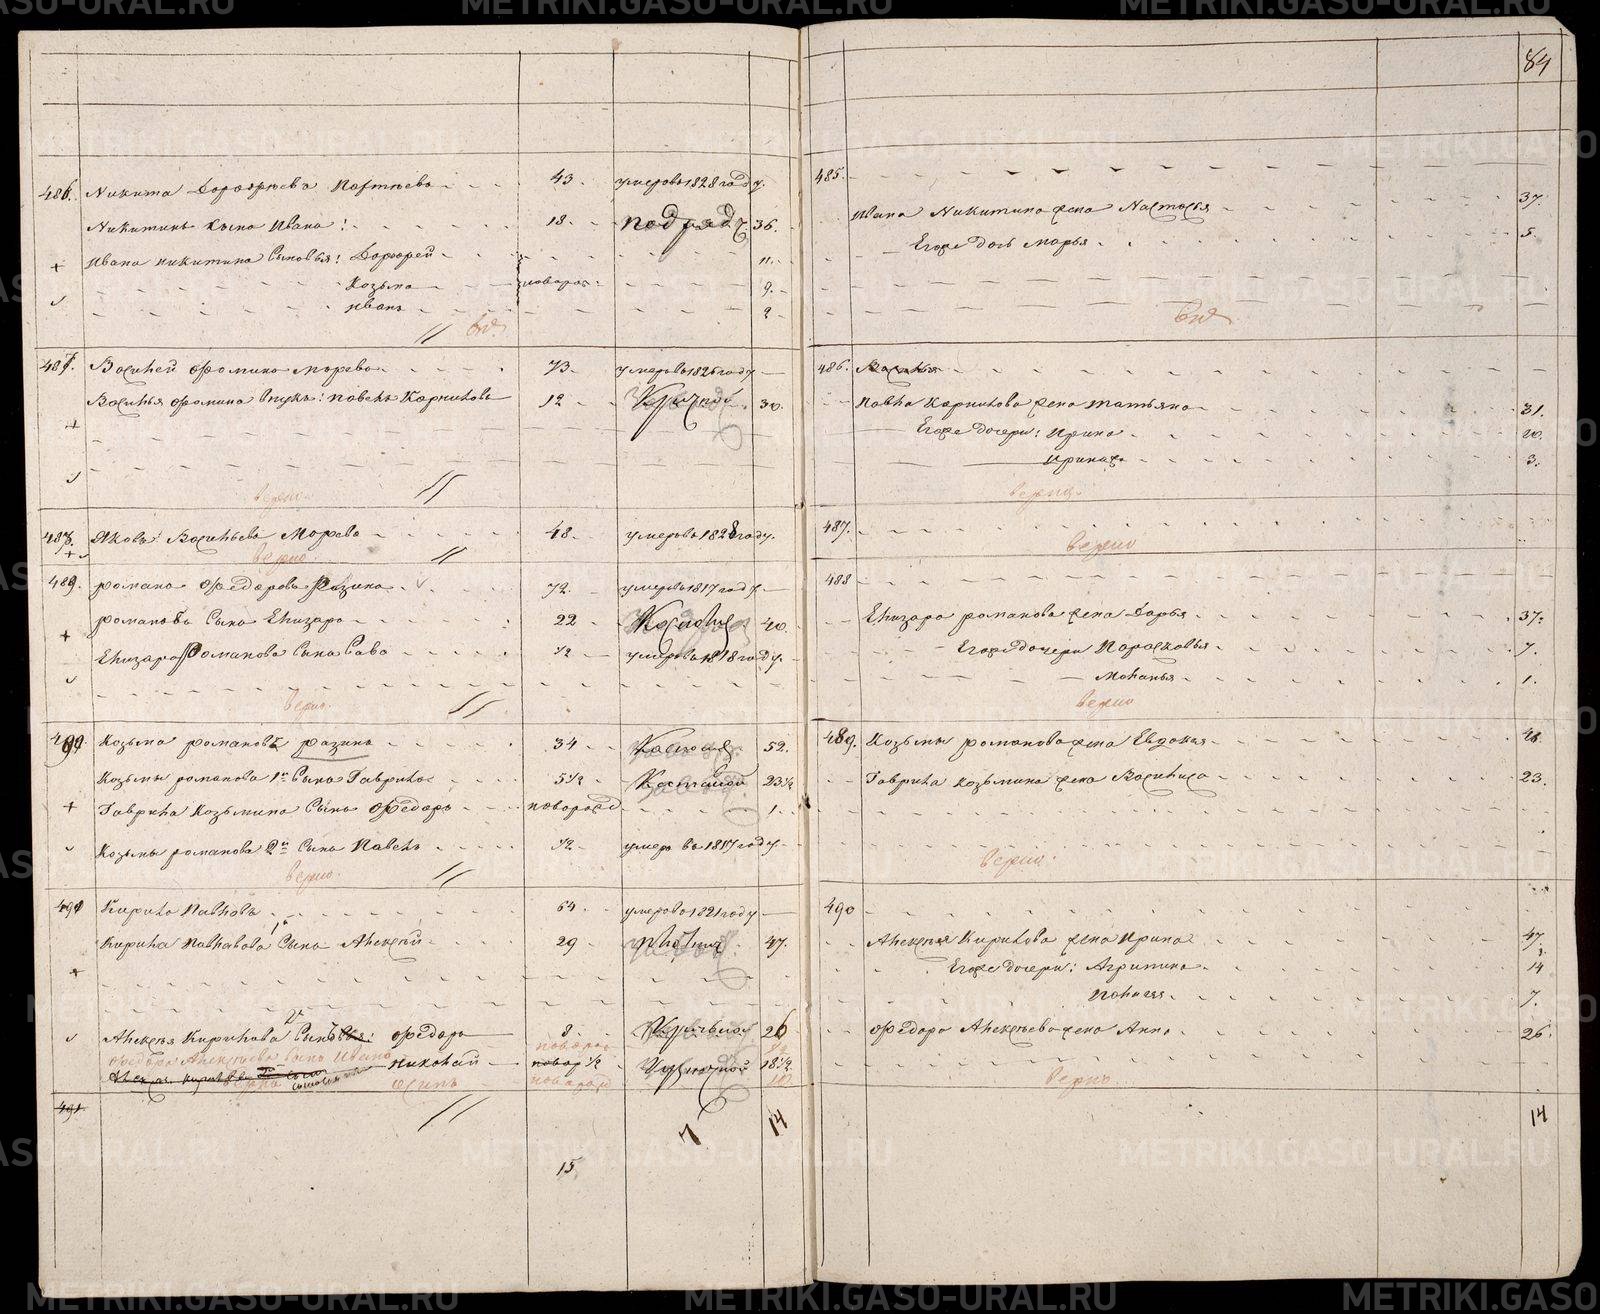 84
486. Никита Дорофеевъ Портневъ 43. умеръ въ 1828 году.
Никитинъ сынъ Иванъ: 18. 36.
Ивана Никитина сыновья: Дорофей 11.
Козьма новорож: 9.
Иванъ 2.
487. Василей Фоминъ Моревъ 73. умеръ въ 1826 году
Василья Фомина внукъ: Павелъ Карниловъ 12 30.
верно.
488. Яковъ Васильевъ Моревъ 48. умеръ въ 1828 году.
верно
489. Романъ Федоровъ Разинъ 72. умеръ въ 1817 году.
Романовъ сынъ Елизаръ 22 40.
Елизара Романова сынъ Сава 1/2 умеръ въ 1818 году.
верно.
490. Козьма Романовъ Разинъ 34 52.
Козьмы Романова 1й сынъ Гаврило 5 1/2 23 1/2
Гаврила Козьмина сынъ Федоръ новорожд 1.
Козьмы Романова 2й сынъ Павелъ 1/2 умеръ въ 1817 году
верно.
491 Кирило Павловъ 64. умеръ въ 1821 году
Кирила Павлова 1й сынъ Алексей 29 47.
Алексея Кирилова сыновья: Федоръ 8. 26
Федора Алексеева сынъ Иванъ новорож
Николай новор 1/2 18 1/2
Осипъ новорож
491.
15
7 14
485.
Ивана Никитина жена Настасья 37.
Его же дочь Марья 5.
486. Василья
Павла Карнилова жена Татьяна 31.
Его же дочери: Ирина 10.
Ирина 3.
верно.
487.
верно
488
Елизара Романова жена Дарья 37.
Его же дочери Парасковья 7.
Маланья 1.
верно
489. Козьмы Романова жена Евдокия
Гаврила Козьмина жена Василиса 23.
верно.
490
Алексея Кирилова жена Ирина 47.
Его же дочери: Агрипина 14
7.
Федора Алексеева жена Анна 26.
верно.
14